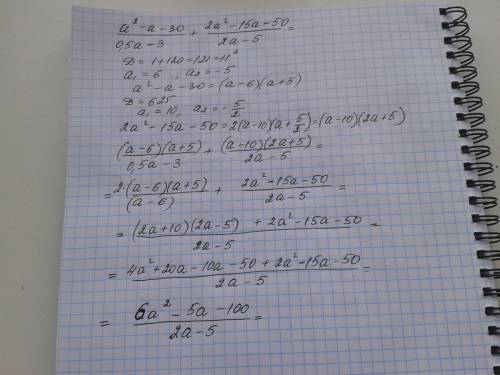 a² - a - 30 / 0,5a - 3 + 2a² - 15a - 50 / 2a - 5 =
D = 1 + 120 = 121 = 11²
a₁ = 6 , a₂ = -5
a² - a - 30 = (a - 6)(a + 5)
D = 625
a₁ = 10, a₂ = -5/2
2a² - 15a - 50 = 2(a - 10)(a + 5/2) = (a - 10)(2a + 5)
(a - 6)(a + 5) / 0,5a - 3 + (a - 10)(2a + 5) / 2a - 5 =
= 2·(a - 6)(a + 5) / (a - 6) + 2a² - 15a - 50 / 2a - 5 =
= (2a + 10)(2a - 5) + 2a² - 15a - 50 / 2a - 5 =
= 4a² + 20a - 10a - 50 + 2a² - 15a - 50 / 2a - 5 =
= 6a² - 5a - 100 / 2a - 5 =